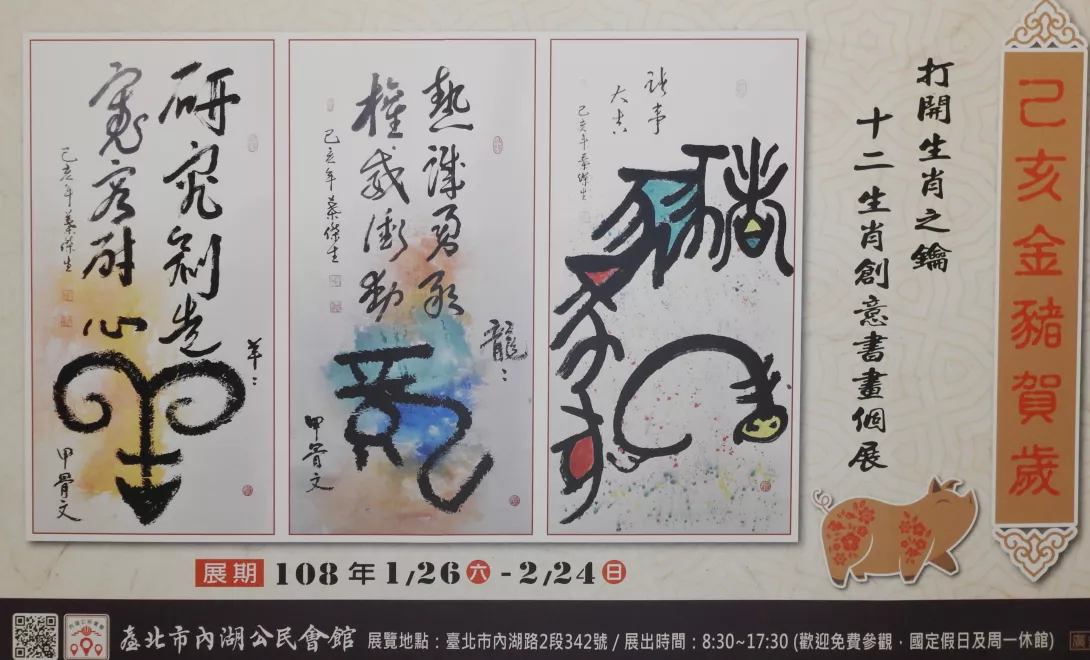 己亥金豬賀歲
打開生肖之鑰
十二生肖創意書畫個展
諸事
大吉
己亥年
豬
熱誠勇敢
權威衝動
己亥年
龍:
甲骨文
研究創造
寬容耐心
己亥年
羊:
甲骨文
展期 108年1/26六-2/24日
臺北市內湖公民會館 展覽地點:臺北市內湖路2段342號 / 展出時間:8:30~17:30 (歡迎免費參觀‧國定假日及周一休館)